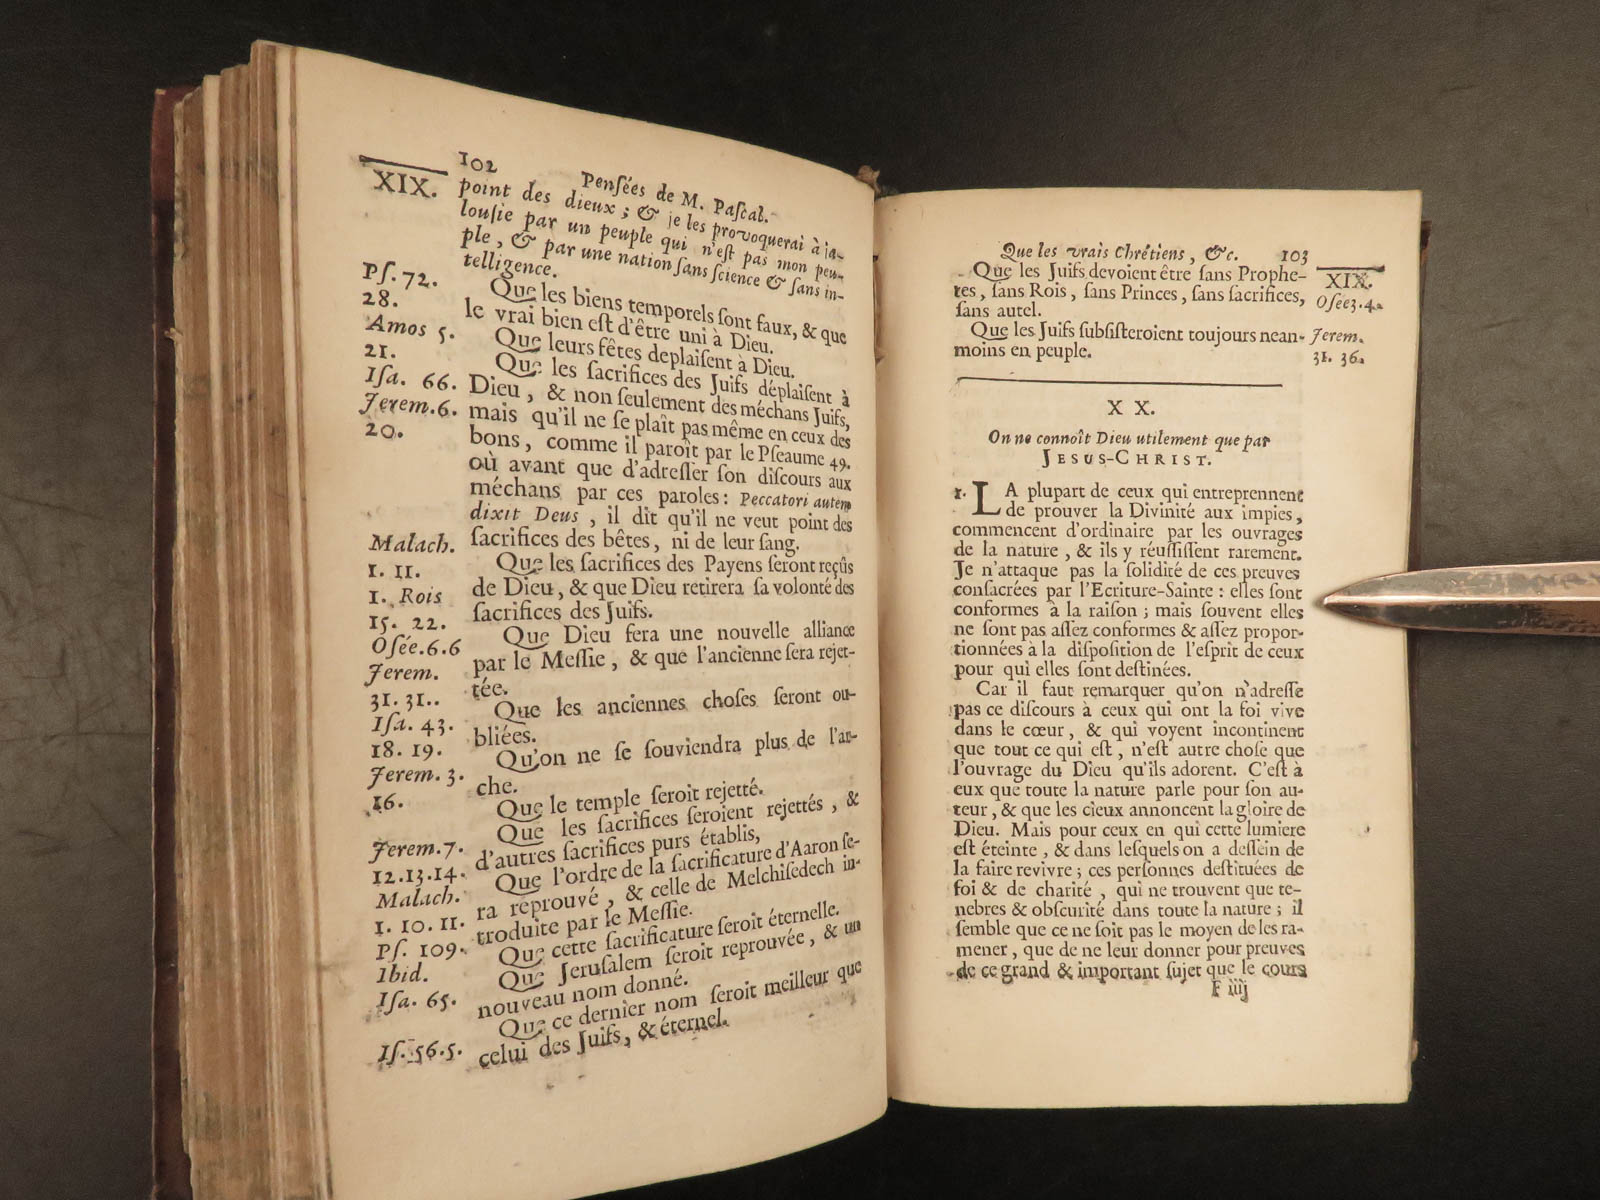 102 Penſées de M. Paſcal.
XIX. point des dieux ; & je les provoquerai à ja-
louſie par un peuple qui n'eſt pas mon peu-
ple, & par une nation ſans ſcience & ſans in-
telligence.
Pſ. 72. Que les biens temporels ſont faux, & que
28. le vrai bien eſt d'être uni à Dieu.
Amos 5. Que leurs fêtes deplaiſent à Dieu.
21. Que les ſacrifices des Juifs déplaiſent à
Iſa. 66. Dieu, & non ſeulement des méchans Juifs,
Jerem. 6. mais qu'il ne ſe plaît pas même en ceux des
20. bons, comme il paroît par le Pſeaume 49.
où avant que d'adreſſer ſon diſcours aux
méchans par ces paroles : Peccatori autem
dixit Deus, il dit qu'il ne veut point des
Malach. ſacrifices des bêtes, ni de leur ſang.
1. 11. Que les ſacrifices des Payens ſeront reçûs
1. Rois de Dieu, & que Dieu retirera ſa volonté des
15. 22. ſacrifices des Juifs.
Oſée. 6. 6 Que Dieu fera une nouvelle alliance
Jerem. par le Meſſie, & que l'ancienne ſera rejet-
31. 31.. tée.
Iſa. 43. Que les anciennes choſes ſeront ou-
18. 19. bliées.
Jerem. 3. Qu'on ne ſe ſouviendra plus de l'ar-
16. che.
Que le temple ſeroit rejetté.
Jerem. 7. Que les ſacrifices ſeroient rejettés, &
12. 13. 14. d'autres ſacrifices purs établis,
Malach. Que l'ordre de la ſacrificature d'Aaron ſe-
1. 10. 11. ra réprouvé, & celle de Melchiſedech in-
Pſ. 109. troduite par le Meſſie.
Ibid. Que cette ſacrificature ſeroit éternelle.
Iſa. 65. Que Jeruſalem ſeroit reprouvée, & un
nouveau nom donné.
Que ce dernier nom ſeroit meilleur que
Iſ. 56. 5. celui des Juifs, & éternel.
Que les vrais Chrétiens, &c. 103
Que les Juifs devoient être ſans Prophe- XIX.
tes, ſans Rois, ſans Princes, ſans ſacrifices, Oſee 3. 4.
ſans autel.
Que les Juifs ſubſiſteroient toujours nean- Jerem.
moins en peuple. 31. 36.
X X.
On ne connoît Dieu utilement que par
JESUS-CHRIST.
1. LA plupart de ceux qui entreprennent
de prouver la Divinité aux impies,
commencent d'ordinaire par les ouvrages
de la nature, & ils y réuſſiſſent rarement.
Je n'attaque pas la ſolidité de ces preuves
conſacrées par l'Ecriture-Sainte : elles ſont
conformes à la raiſon ; mais ſouvent elles
ne ſont pas aſſez conformes & aſſez propor-
tionnées à la diſpoſition de l'eſprit de ceux
pour qui elles ſont deſtinées.
Car il faut remarquer qu'on n'adreſſe
pas ce diſcours à ceux qui ont la foi vive
dans le cœur, & qui voyent incontinent
que tout ce qui eſt, n'eſt autre choſe que
l'ouvrage du Dieu qu'ils adorent. C'eſt à
eux que toute la nature parle pour ſon au-
teur, & que les cieux annoncent la gloire de
Dieu. Mais pour ceux en qui cette lumiere
eſt éteinte, & dans leſquels on a deſſein de
la faire revivre ; ces perſonnes deſtituées de
foi & de charité, qui ne trouvent que te-
nebres & obſcurité dans toute la nature ; il
ſemble que ce ne ſoit pas le moyen de les ra-
mener, que de ne leur donner pour preuves
de ce grand & important ſujet que le cours
F iiij